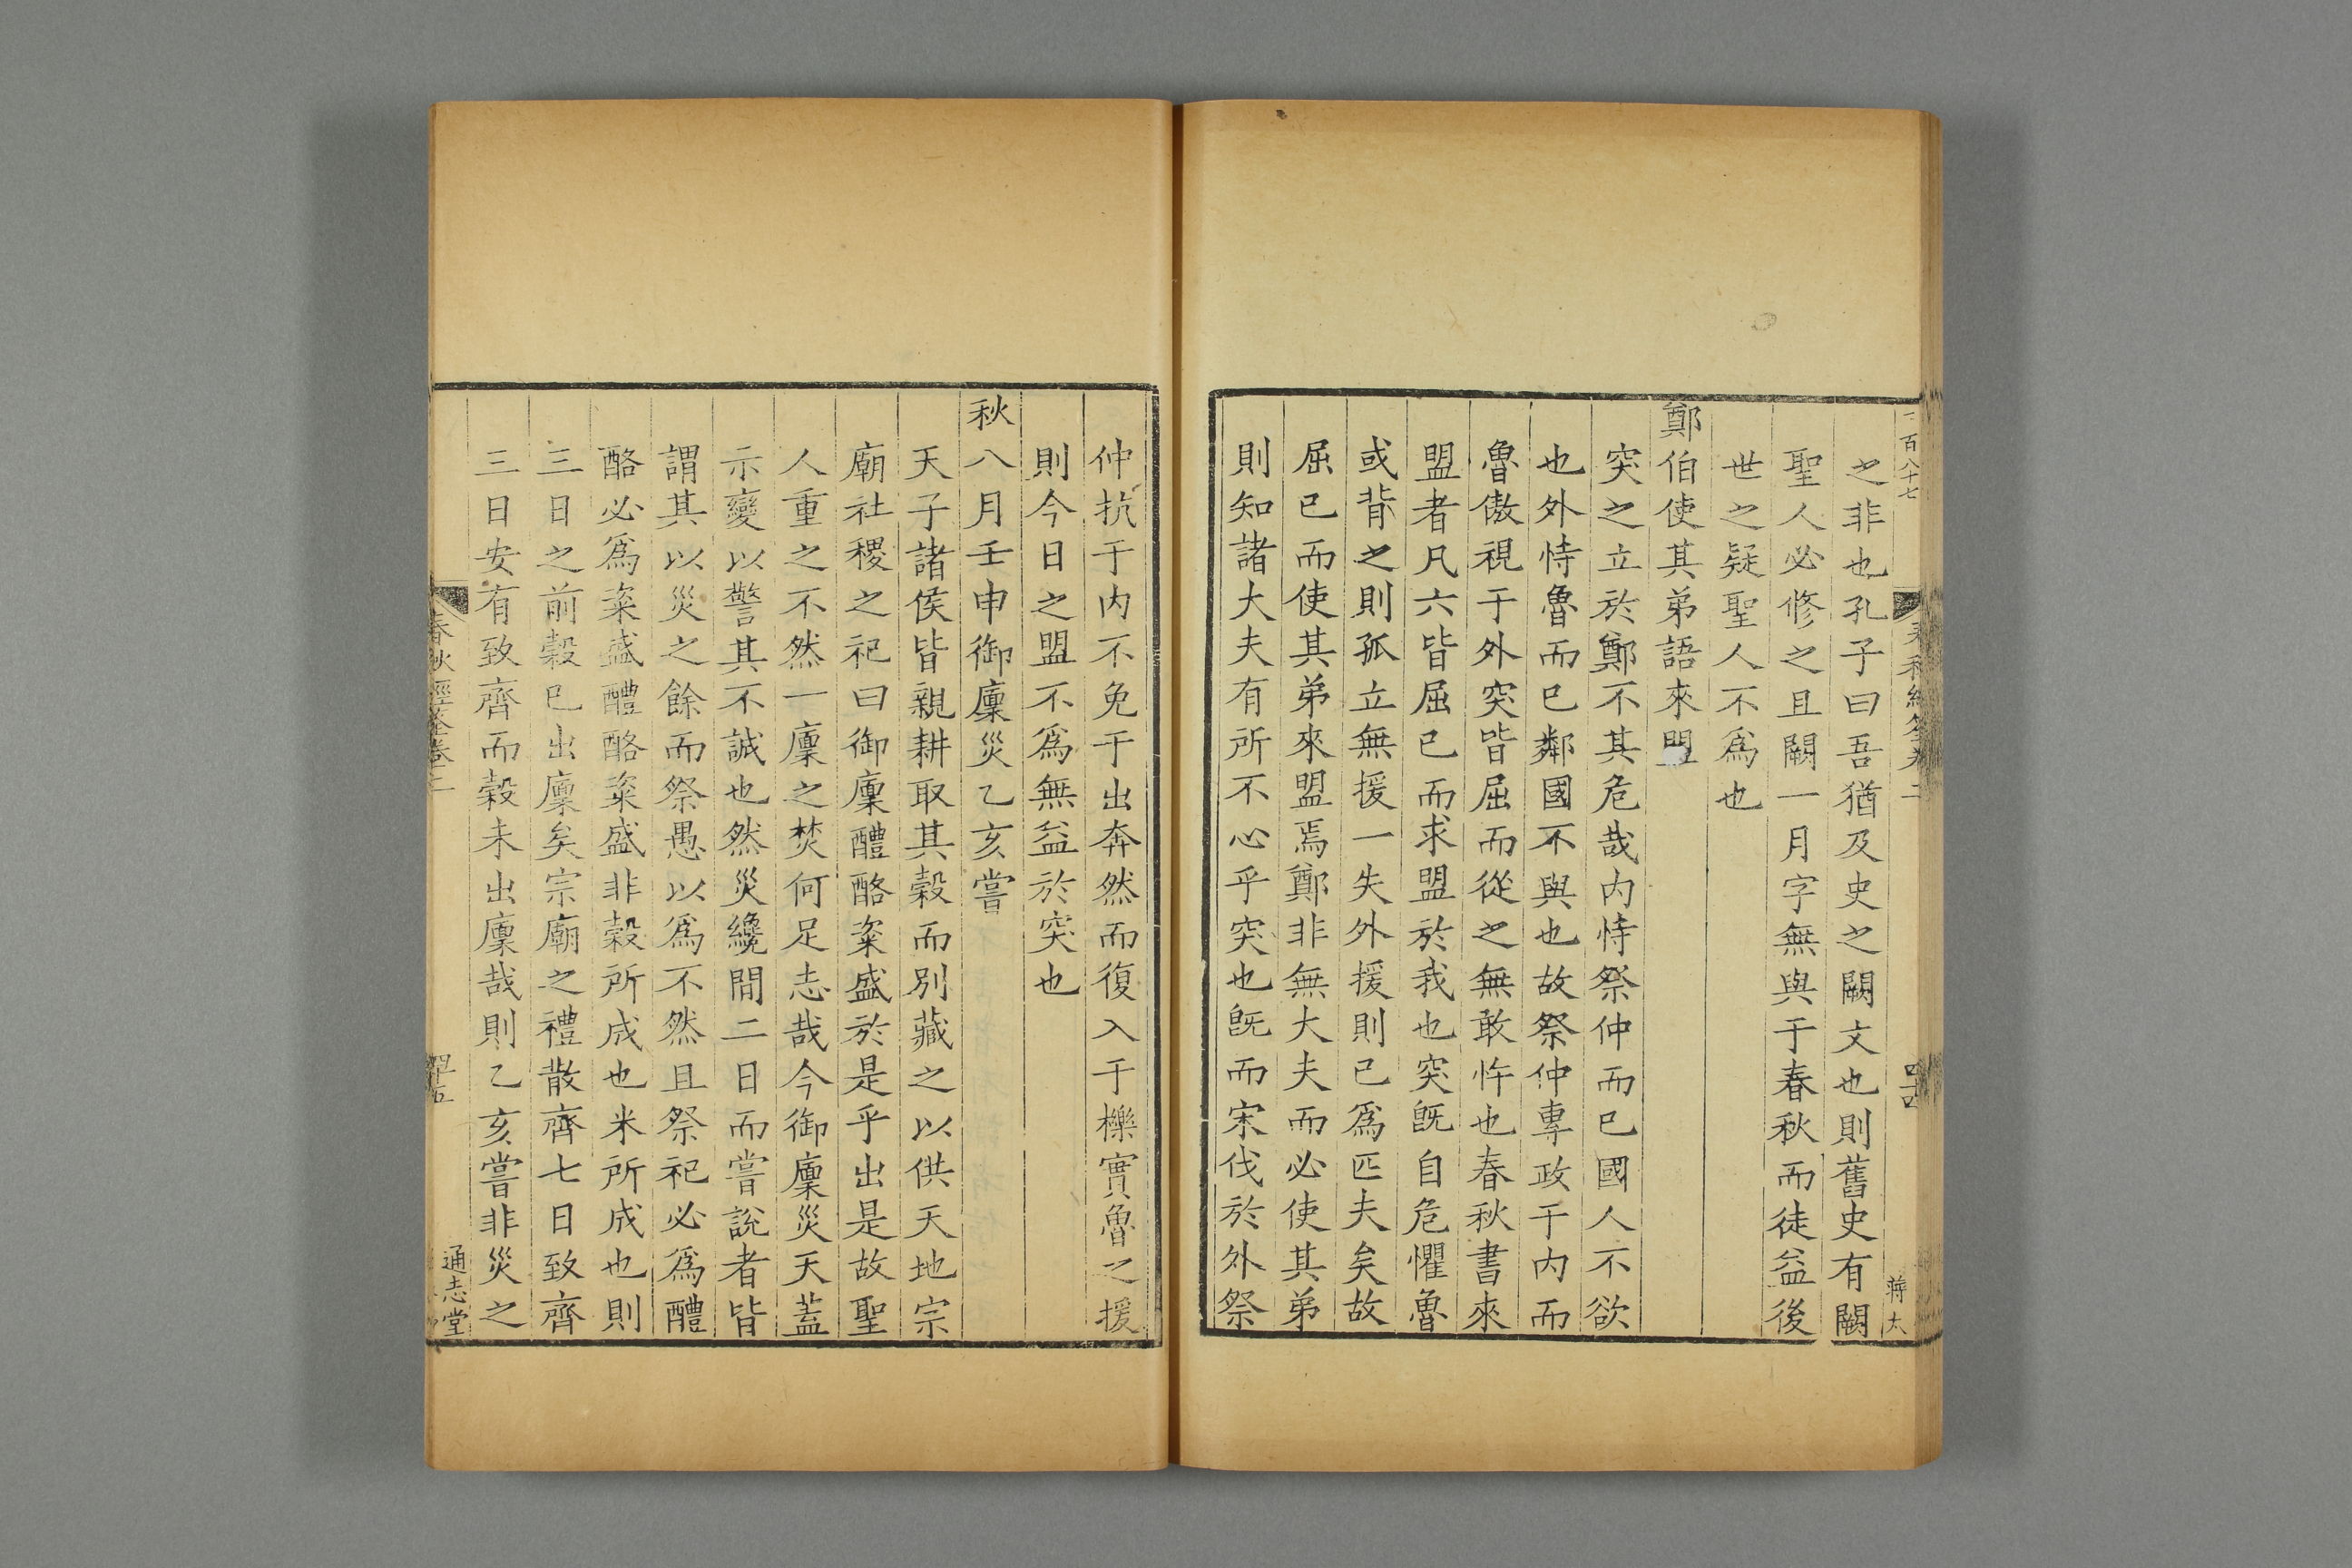 之非也孔子曰吾猶及史之闕文也則舊史有闕
聖人必修之且闕一月字無與于春秋而徒益後
世之疑聖人不爲也
鄭伯使其弟語來盟
突之立於鄭不其危哉内恃祭仲而已國人不欲
也外恃魯而已鄰國不與也故祭仲專政于内而
魯傲視于外突皆屈而從之無敢忤也春秋書來
盟者凡六皆屈已而求盟於我也突旣自危懼魯
或背之則孤立無援一失外援則已爲匹夫矣故
屈已而使其弟來盟焉鄭非無大夫而必使其弟
則知諸大夫有所不心乎突也旣而宋伐於外祭
仲抗于内不免于出奔然而復入于櫟實魯之援
則今日之盟不爲無益於突也
秋八月壬申御廩災乙亥嘗
天子諸侯皆親耕取其榖而別藏之以供天地宗
廟社稷之祀曰御廩醴酪粢盛於是乎出是故聖
人重之不然一廩之焚何足志哉今御廩災天蓋
示變以警其不誠也然災纔間二日而嘗說者皆
謂其以災之餘而祭愚以爲不然且祭祀必爲醴
酪必爲粢盛醴酪粢盛非榖所成也米所成也則
三日之前榖已出廩矣宗廟之禮散齊七日致齊
三日安有致齊而榖未出廩哉則乙亥嘗非災之
春秋經筌卷二
四十五
通志堂